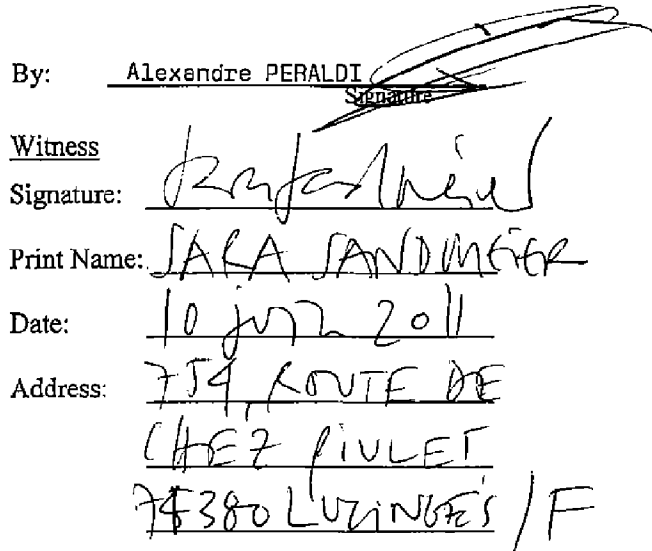 By: Alexandre PERALDI
Signature
Witness
Signature:
Print Name: SARA SANDMEIER
Date: 10 juin 2011
Address: 754, ROUTE DE
CHEZ
74380 LUZINGES / F